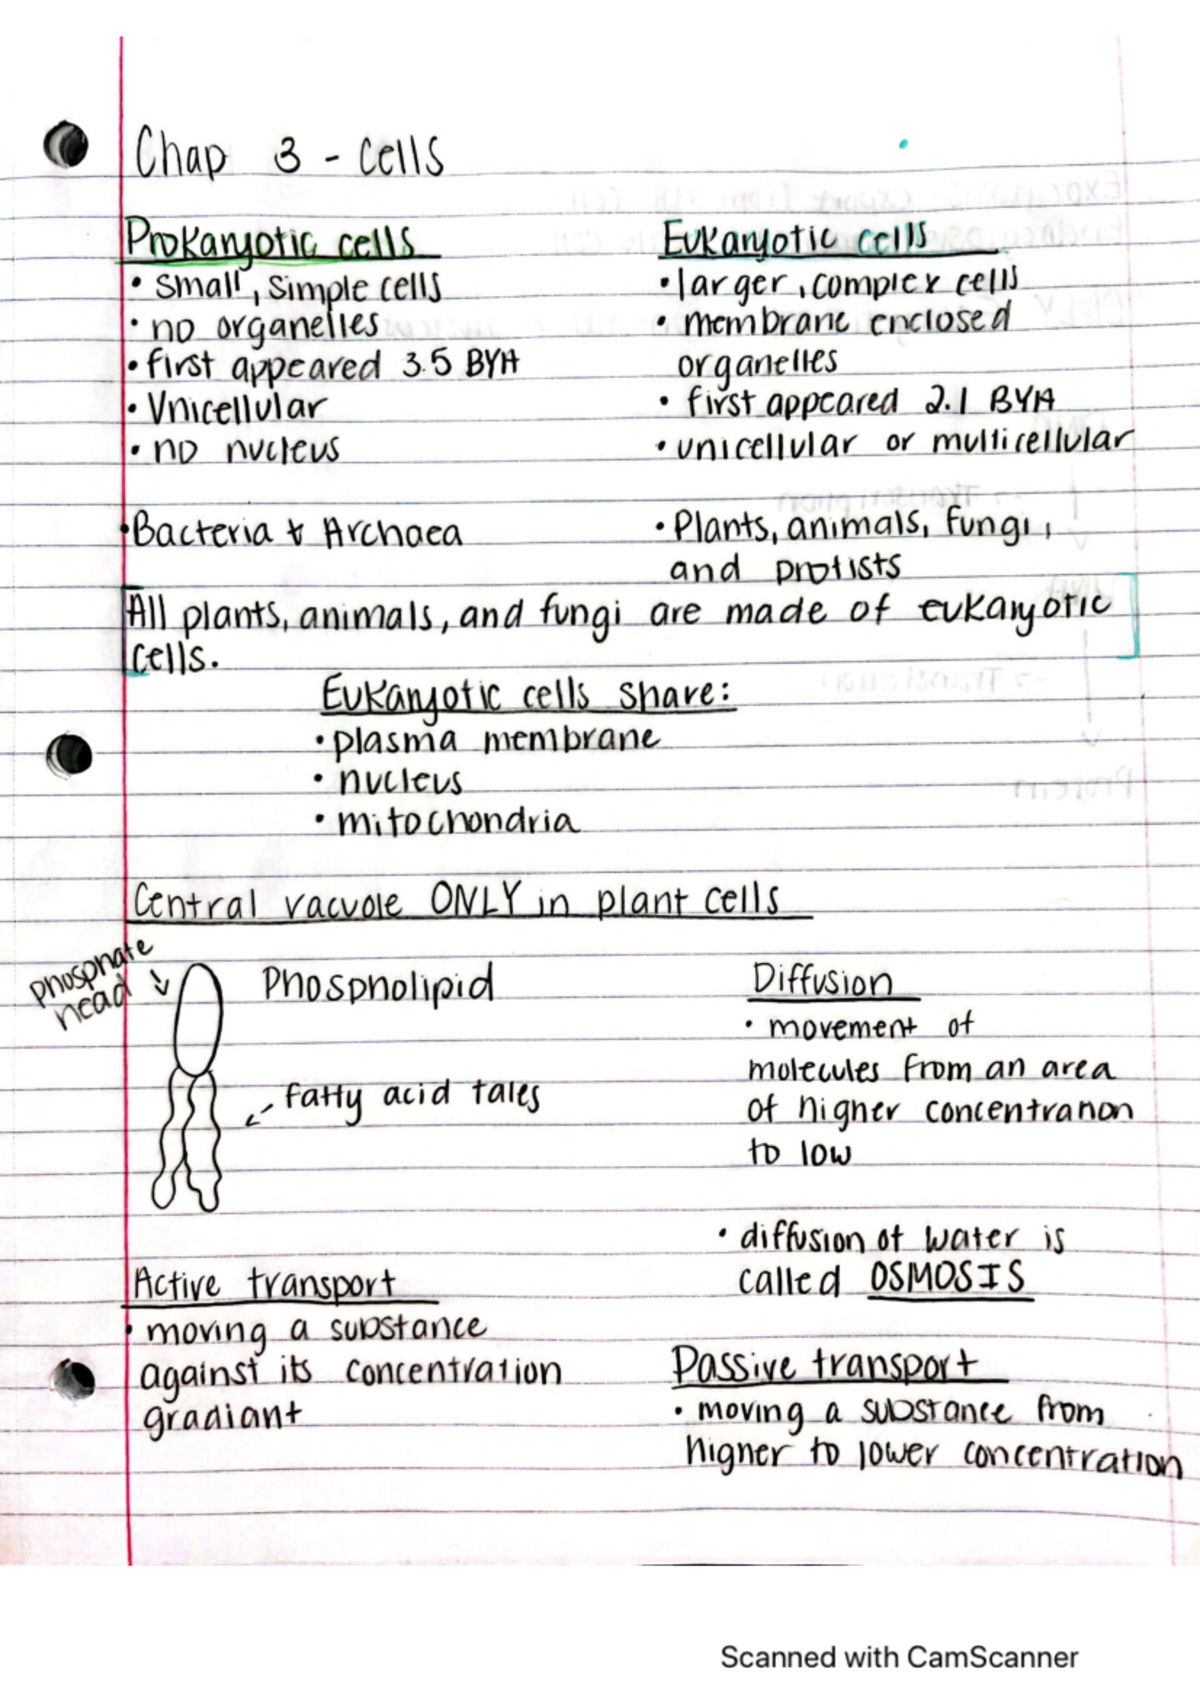 Chap 3 - Cells
Prokaryotic cells
• small, simple cells
• no organelles
• first appeared 3.5 BYA
• Unicellular
• no nucleus
• Bacteria & Archaea
Eukaryotic cells
• larger, complex cells
• membrane enclosed
organelles
• first appeared 2.1 BYA
• unicellular or multicellular
• Plants, animals, fungi,
and protists
All plants, animals, and fungi are made of eukaryotic
cells.
Eukaryotic cells share:
• plasma membrane
• nucleus
• mitochondria
Central vacuole ONLY in plant cells
phosphate
head
Phospholipid
fatty acid tales
Diffusion
• movement of
molecules from an area
of higher concentration
to low
• diffusion of water is
called OSMOSIS
Active transport
• moving a substance
against its concentration
gradiant
Passive transport
• moving a substance from
higher to lower concentration
Scanned with CamScanner